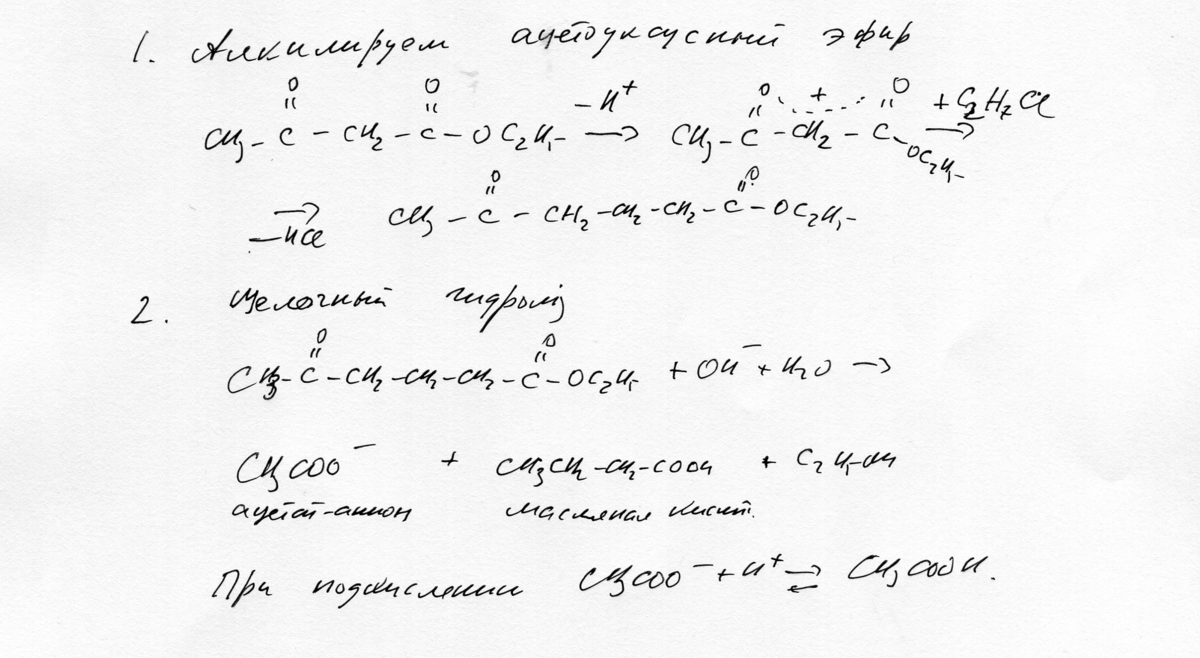 1. Алкилируем ацетоуксусный эфир
O O O + O
CH3 – C – CH2 – C – OC2H5 –H+ → CH3 – C – CH2 – C – OC2H5 + C2H5Cl →
→ –HCl CH3 – C – CH2 – CH2 – CH2 – C – OC2H5
2. Щелочный гидролиз
CH3 – C – CH2 – CH2 – CH2 – C – OC2H5 + OH– + H2O →
CH3COO– + CH3CH2 – CH2 – COOH + C2H5OH
ацетат-анион масляная кислот.
При подкислении CH3COO– + H+ ⇄ CH3COOH.